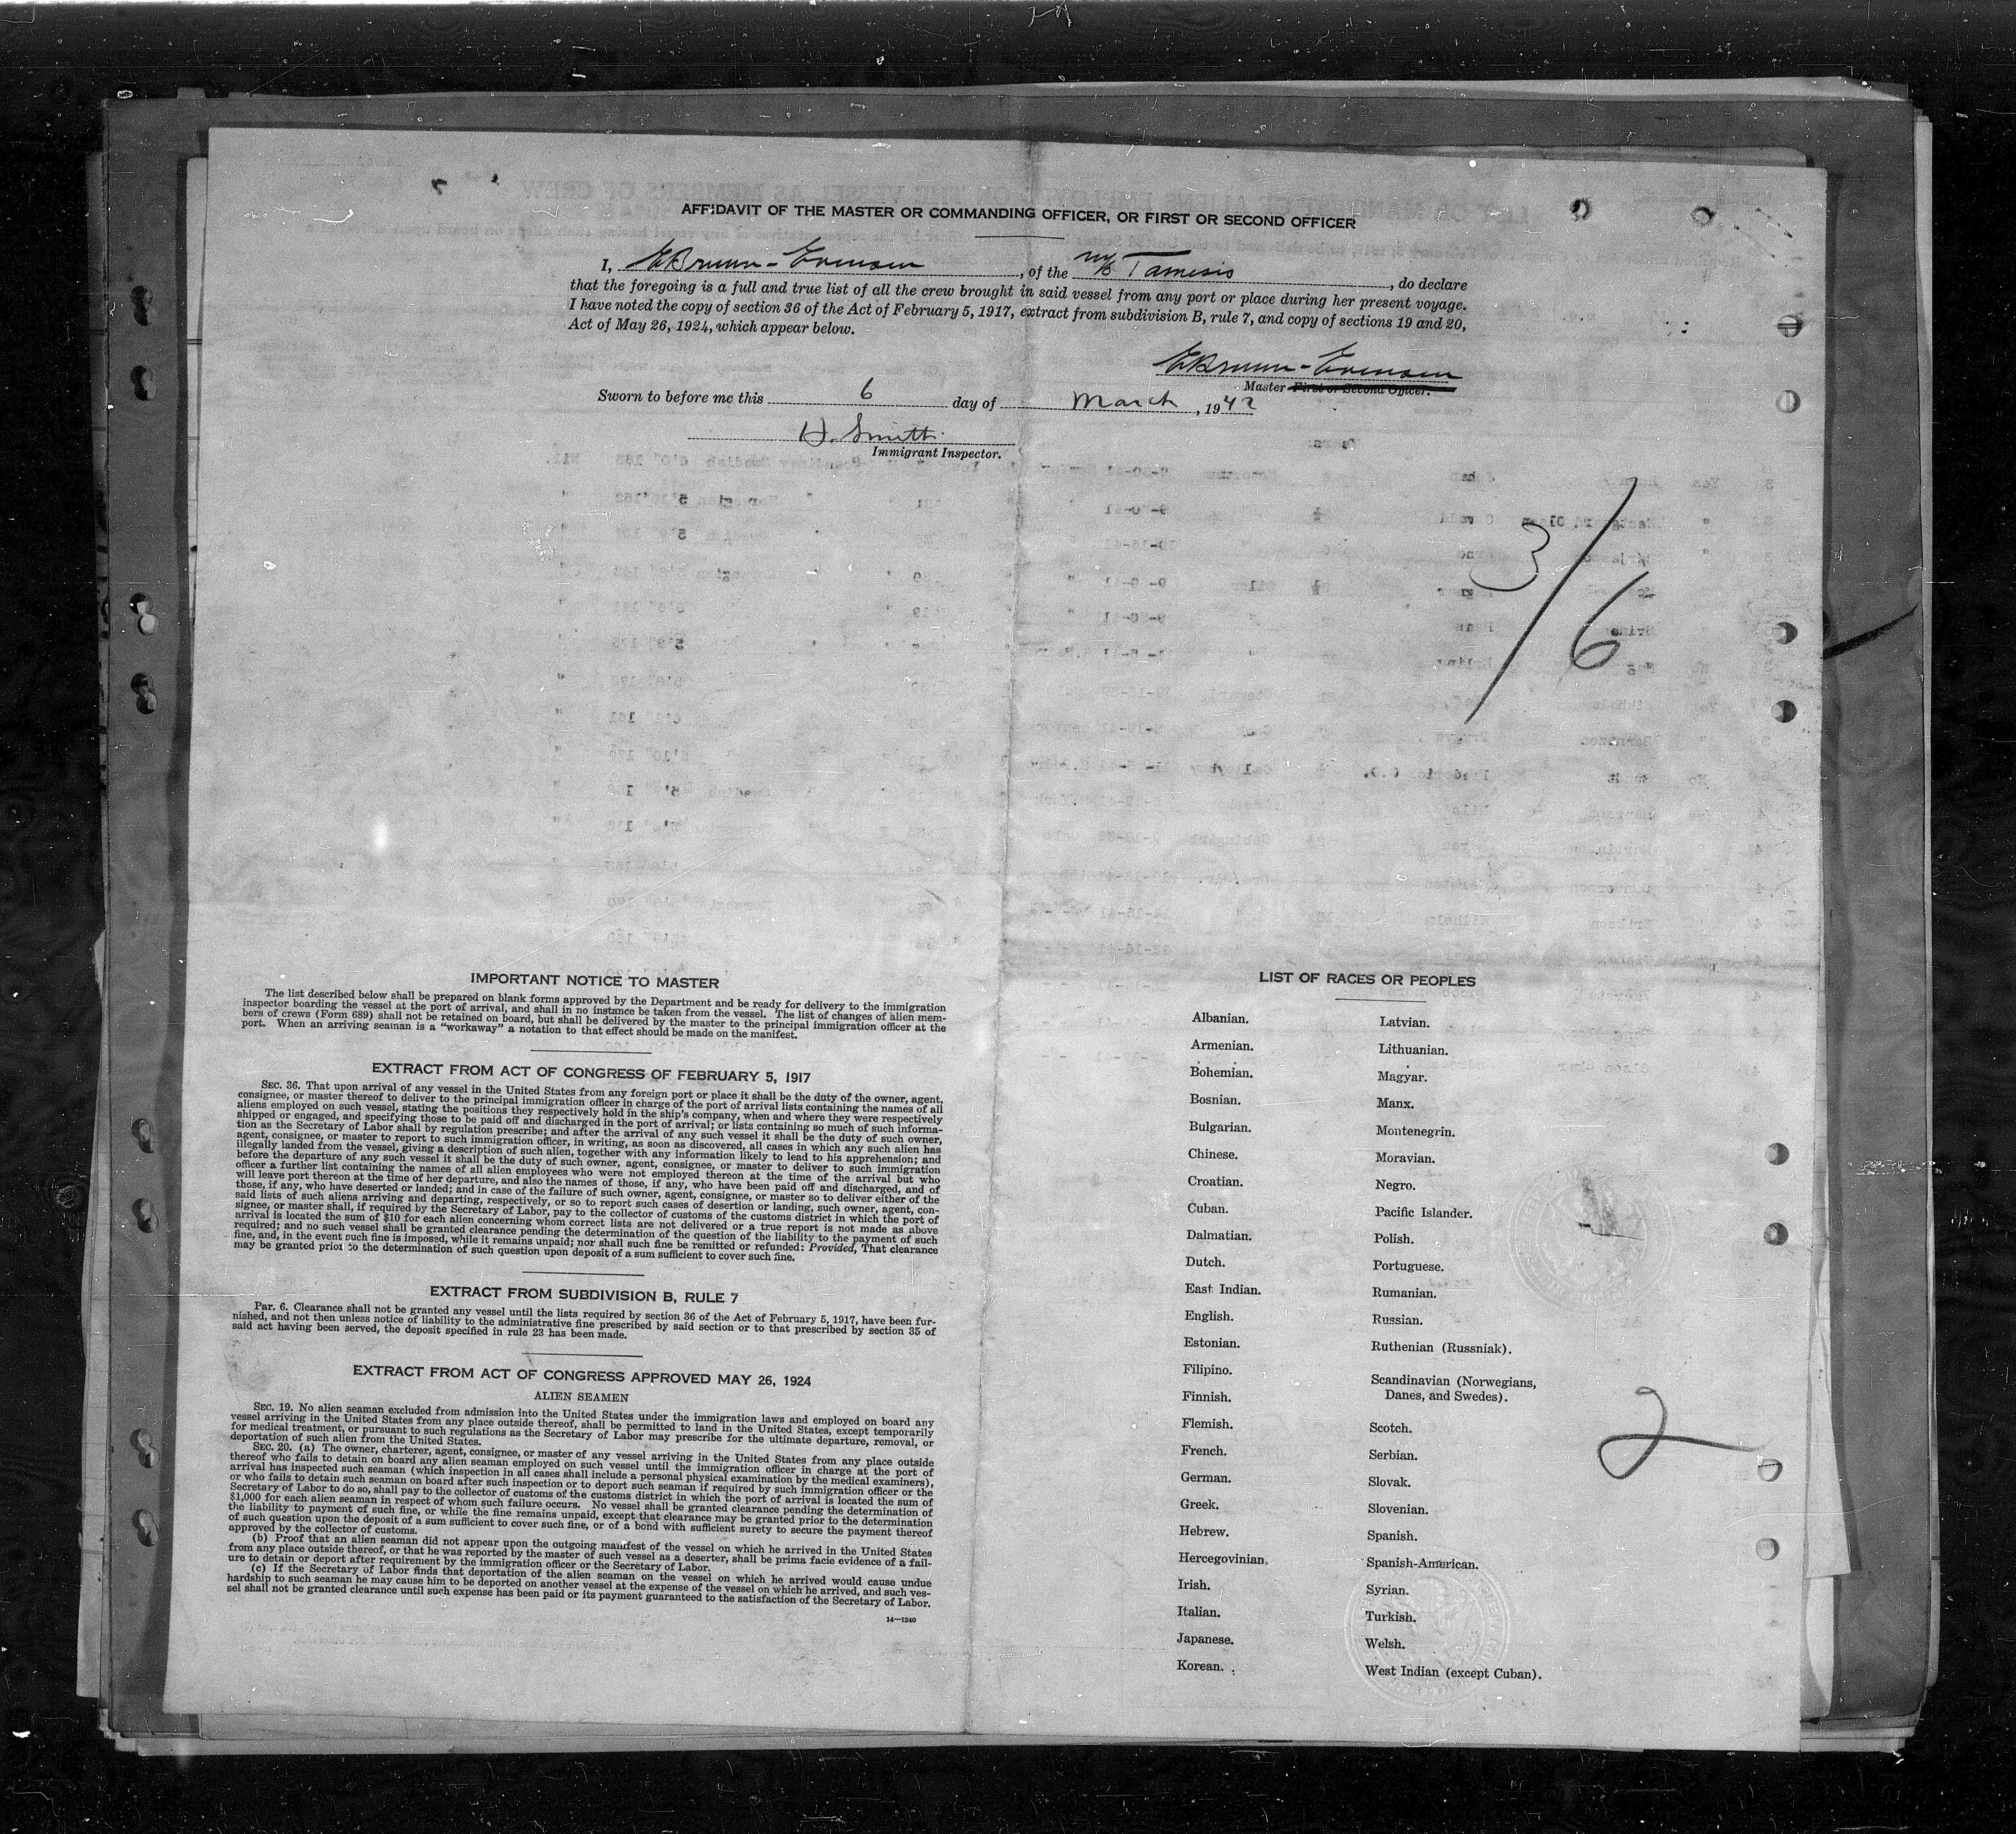 AFFIDAVIT OF THE MASTER OR COMMANDING OFFICER, OR FIRST OR SECOND OFFICER
I, EBruun-Evensen, of the M/S Tamesis, do declare
that the foregoing is a full and true list of all the crew brought in said vessel from any port or place during her present voyage.
I have noted the copy of section 36 of the Act of February 5, 1917, extract from subdivision B, rule 7, and copy of sections 19 and 20,
Act of May 26, 1924, which appear below.
EBruun-Evensen
Master First or Second Officer.
Sworn to before me this 6 day of March, 1942
H. Smith
Immigrant Inspector.
3/6
IMPORTANT NOTICE TO MASTER
The list described below shall be prepared on blank forms approved by the Department and be ready for delivery to the immigration
inspector boarding the vessel at the port of arrival, and shall in no instance be taken from the vessel. The list of changes of alien mem-
bers of crews (Form 689) shall not be retained on board, but shall be delivered by the master to the principal immigration officer at the
port. When an arriving seaman is a "workaway" a notation to that effect should be made on the manifest.
EXTRACT FROM ACT OF CONGRESS OF FEBRUARY 5, 1917
SEC. 36. That upon arrival of any vessel in the United States from any foreign port or place it shall be the duty of the owner, agent,
consignee, or master thereof to deliver to the principal immigration officer in charge of the port of arrival lists containing the names of all
aliens employed on such vessel, stating the positions they respectively hold in the ship's company, when and where they were respectively
shipped or engaged, and specifying those to be paid off and discharged in the port of arrival; or lists containing so much of such informa-
tion as the Secretary of Labor shall by regulation prescribe; and after the arrival of any such vessel it shall be the duty of such owner,
agent, consignee, or master to report to such immigration officer, in writing, as soon as discovered, all cases in which any such alien has
illegally landed from the vessel, giving a description of such alien, together with any information likely to lead to his apprehension; and
before the departure of any such vessel it shall be the duty of such owner, agent, consignee, or master to deliver to such immigration
officer a further list containing the names of all alien employees who were not employed thereon at the time of the arrival but who
will leave port thereon at the time of her departure, and also the names of those, if any, who have been paid off and discharged, and of
those, if any, who have deserted or landed; and in case of the failure of such owner, agent, consignee, or master so to deliver either of the
said lists of such aliens arriving and departing, respectively, or so to report such cases of desertion or landing, such owner, agent, con-
signee, or master shall, if required by the Secretary of Labor, pay to the collector of customs of the customs district in which the port of
arrival is located the sum of $10 for each alien concerning whom correct lists are not delivered or a true report is not made as above
required; and no such vessel shall be granted clearance pending the determination of the question of the liability to the payment of such
fine, and, in the event such fine is imposed, while it remains unpaid; nor shall such fine be remitted or refunded: Provided, That clearance
may be granted prior to the determination of such question upon deposit of a sum sufficient to cover such fine.
EXTRACT FROM SUBDIVISION B, RULE 7
Par. 6. Clearance shall not be granted any vessel until the lists required by section 36 of the Act of February 5, 1917, have been fur-
nished, and not then unless notice of liability to the administrative fine prescribed by said section or to that prescribed by section 35 of
said act having been served, the deposit specified in rule 23 has been made.
EXTRACT FROM ACT OF CONGRESS APPROVED MAY 26, 1924
ALIEN SEAMEN
SEC. 19. No alien seaman excluded from admission into the United States under the immigration laws and employed on board any
vessel arriving in the United States from any place outside thereof, shall be permitted to land in the United States, except temporarily
for medical treatment, or pursuant to such regulations as the Secretary of Labor may prescribe for the ultimate departure, removal, or
deportation of such alien from the United States.
SEC. 20. (a) The owner, charterer, agent, consignee, or master of any vessel arriving in the United States from any place outside
thereof who fails to detain on board any alien seaman employed on such vessel until the immigration officer in charge at the port of
arrival has inspected such seaman (which inspection in all cases shall include a personal physical examination by the medical examiners),
or who fails to detain such seaman on board after such inspection or to deport such seaman if required by such immigration officer or the
Secretary of Labor to do so, shall pay to the collector of customs of the customs district in which the port of arrival is located the sum of
$1,000 for each alien seaman in respect of whom such failure occurs. No vessel shall be granted clearance pending the determination of
the liability to payment of such fine, or while the fine remains unpaid, except that clearance may be granted prior to the determination
of such question upon the deposit of a sum sufficient to cover such fine, or of a bond with sufficient surety to secure the payment thereof
approved by the collector of customs.
(b) Proof that an alien seaman did not appear upon the outgoing manifest of the vessel on which he arrived in the United States
from any place outside thereof, or that he was reported by the master of such vessel as a deserter, shall be prima facie evidence of a fail-
ure to detain or deport after requirement by the immigration officer or the Secretary of Labor.
(c) If the Secretary of Labor finds that deportation of the alien seaman on the vessel on which he arrived would cause undue
hardship to such seaman he may cause him to be deported on another vessel at the expense of the vessel on which he arrived, and such ves-
sel shall not be granted clearance until such expense has been paid or its payment guaranteed to the satisfaction of the Secretary of Labor.
14—1240
LIST OF RACES OR PEOPLES
Albanian.
Armenian.
Bohemian.
Bosnian.
Bulgarian.
Chinese.
Croatian.
Cuban.
Dalmatian.
Dutch.
East Indian.
English.
Estonian.
Filipino.
Finnish.
Flemish.
French.
German.
Greek.
Hebrew.
Hercegovinian.
Irish.
Italian.
Japanese.
Korean.
Latvian.
Lithuanian.
Magyar.
Manx.
Montenegrin.
Moravian.
Negro.
Pacific Islander.
Polish.
Portuguese.
Rumanian.
Russian.
Ruthenian (Russniak).
Scandinavian (Norwegians,
Danes, and Swedes).
Scotch.
Serbian.
Slovak.
Slovenian.
Spanish.
Spanish-American.
Syrian.
Turkish.
Welsh.
West Indian (except Cuban).
2